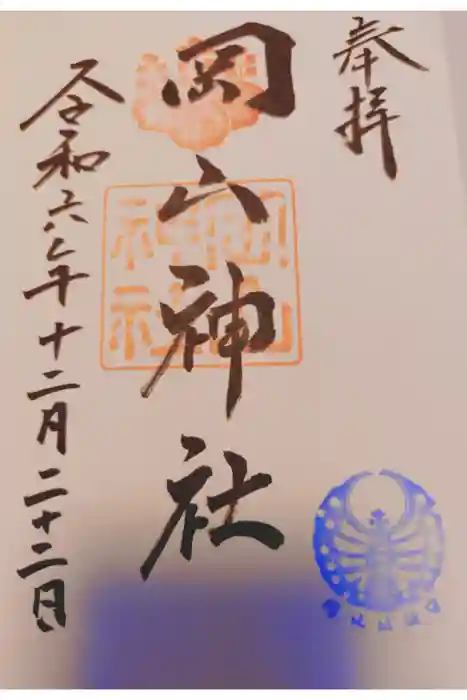 奉拝
岡山神社
令和六年十二月二十二日